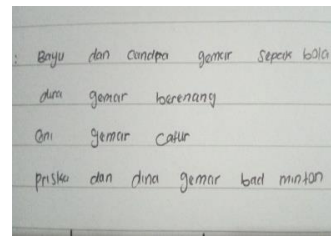 : Bayu dan candra gemar sepak bola
dina gemar berenang
Oni gemar catur
priska dan dina gemar bad minton